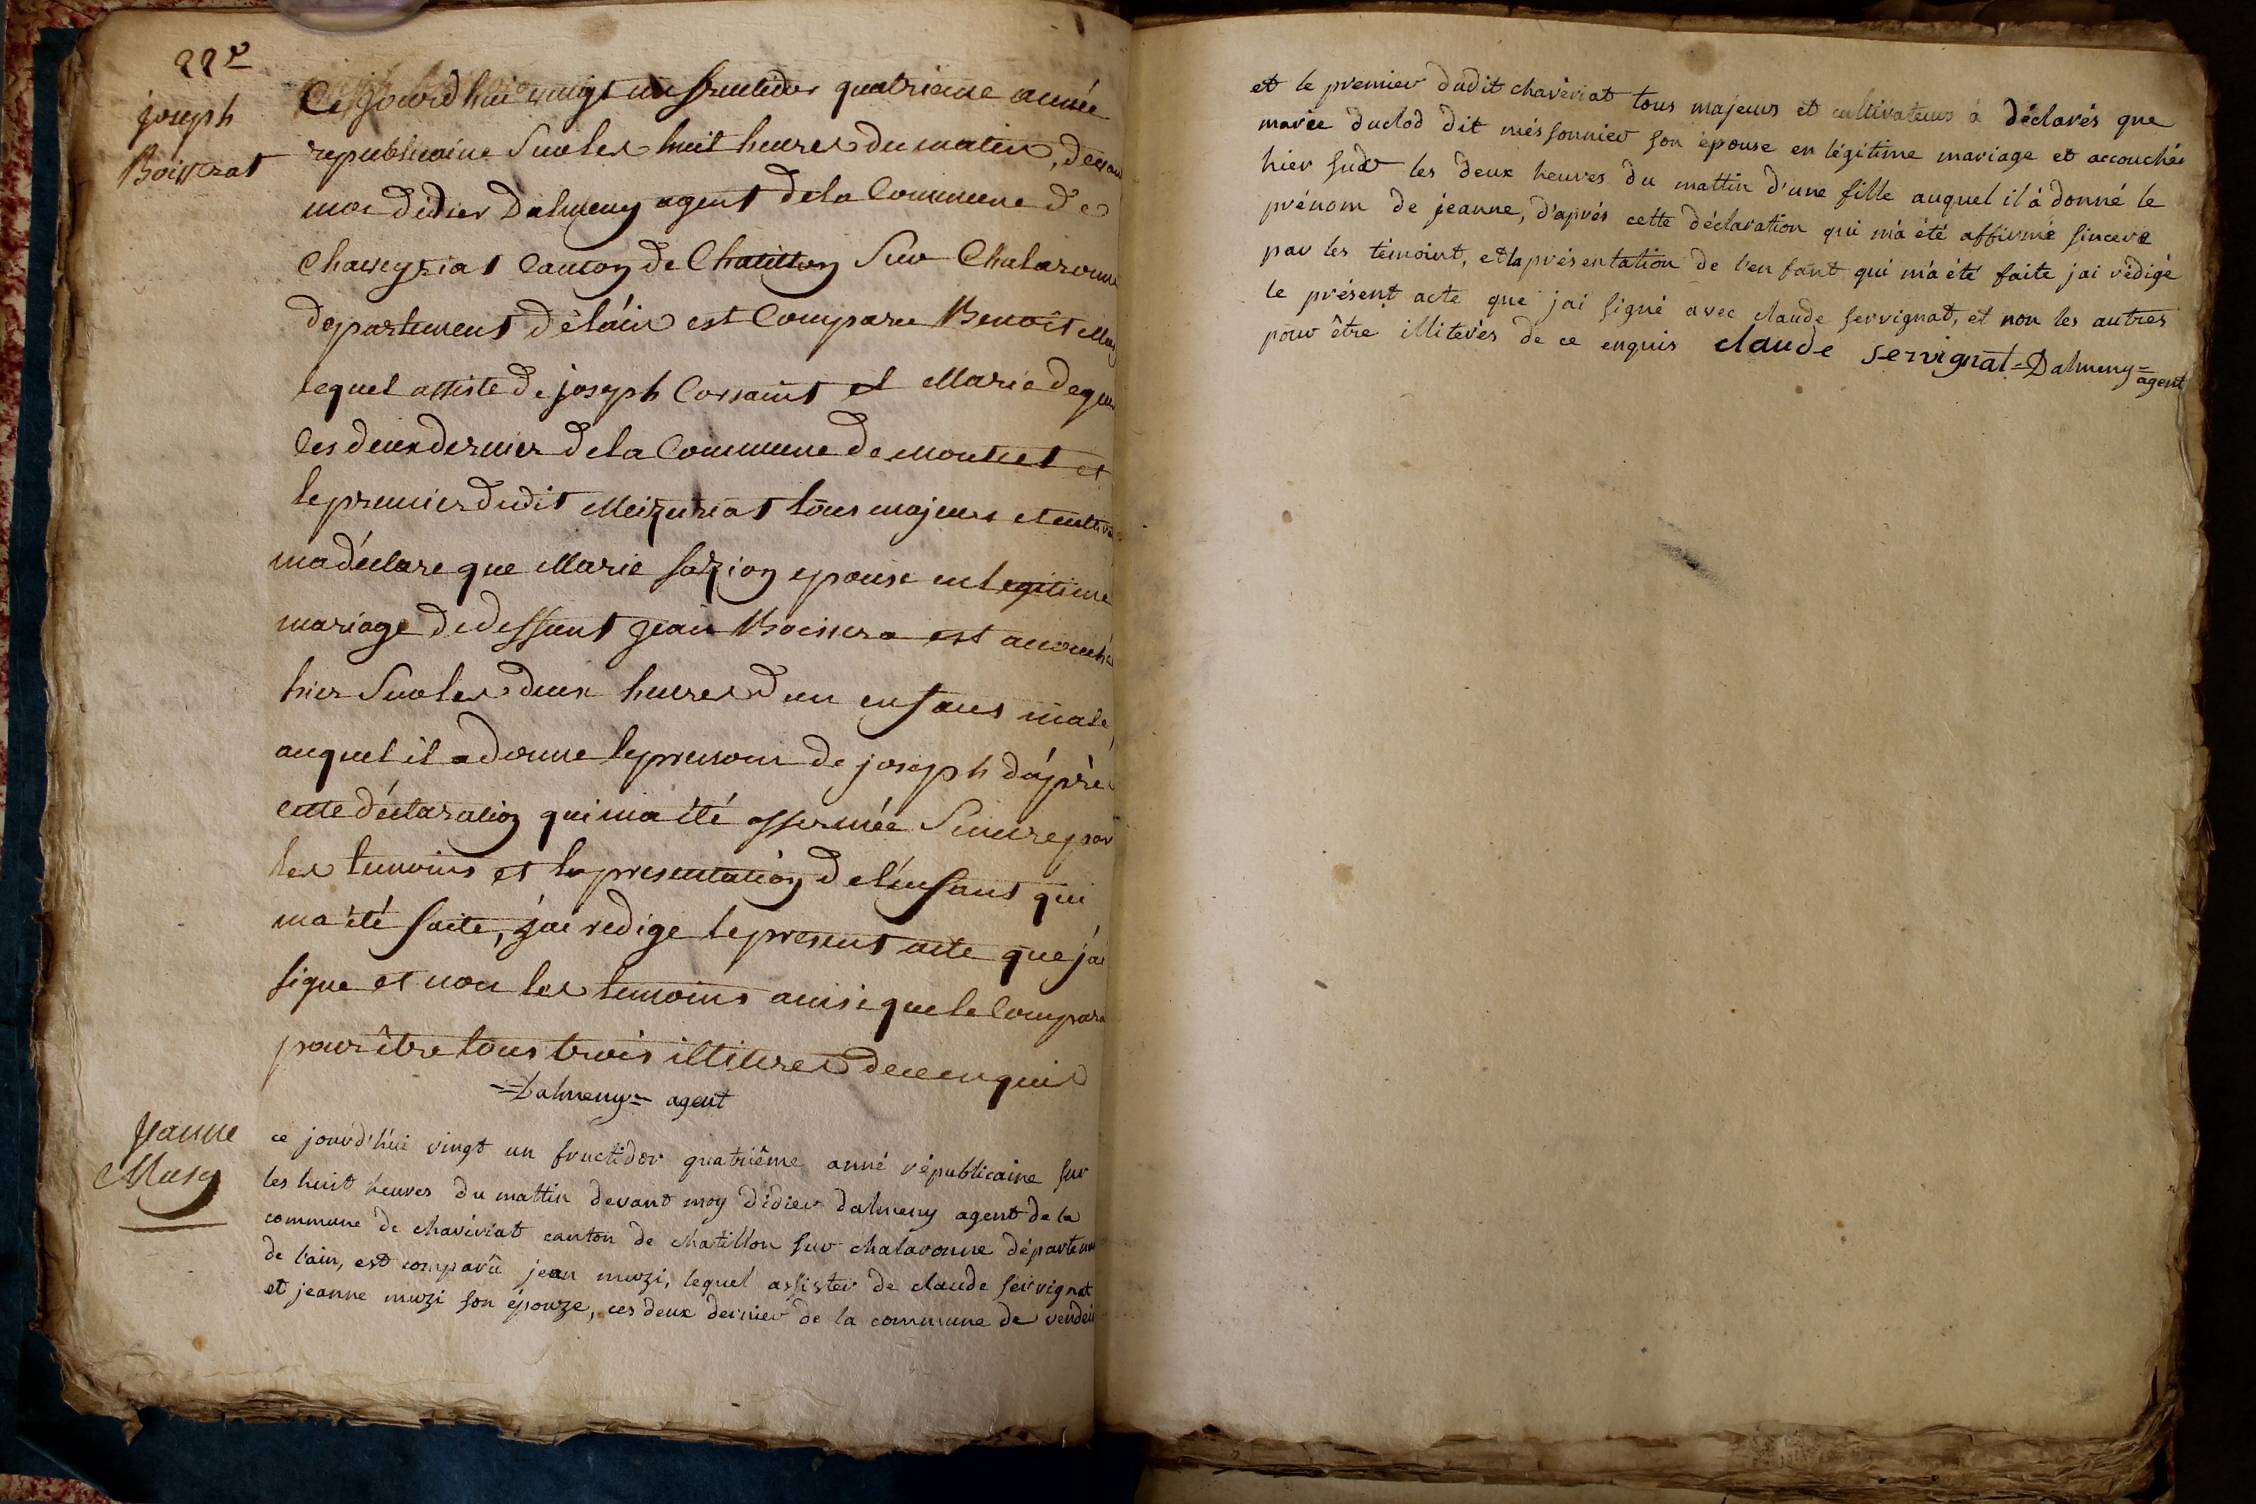 22e
joseph
Boisserat
Cejourdhui vingt un fructidor quatrieme année
republicaine Sur les huit heures du matin, devan
moi didier Dalmeny agent dela Commune de
Chaveyriat Canton de Chatillon Sur Chalaronne
departement de lain est Comparu Benoit
lequel assiste de joseph Corsaint et Marie
les deux dernier dela Commune de montcet et
le premier dudit Meizeriat tous majeurs et cultiva
ma déclare que Marie epouse en legitime
mariage de deffunt jean Boissera est accouché
hier Sur les deux heures dun enfans male,
auquel il a donne le prenom de joseph d'après
cette déclaration qui ma été affirmée Sincere par
les temoins et la presentation de l'enfant qui
ma été faite, j'ai redige le present acte que j'ai
signe et non les temoins ainsi que le Compara
pour être tous trois illiteres de ce enquis
=Dalmeny= agent
jeanne
Musy
ce jourd'hui vingt un fructidor quatriême anné républicaine sur
les huit heures du mattin devant moy didier dalmeny agent de la
commune de chavériat canton de chatillon sur chalaronne départem
de l'ain, est comparû jean muzi, lequel assister de claude servignat
et jeanne muzi son épouze, ces deux dernier de la commune de vendei
et le premier dudit chavériat tous majeurs et cultivateurs à déclarés que
marie duclod dit méssonnier son épouse en légitime mariage et accouchée
hier sur les deux heures du mattin d'une fille auquel il à donné le
prénom de jeanne, d'aprés cette déclaration qui m'a été affirmé sincere
par les témoint, et la présentation de l'enfant qui m'a été faite jai rédigé
le présent acte que jai signé avec claude servignat, et non les autres
pour être illiterés de ce enquis claude servignat =Dalmeny=
agent